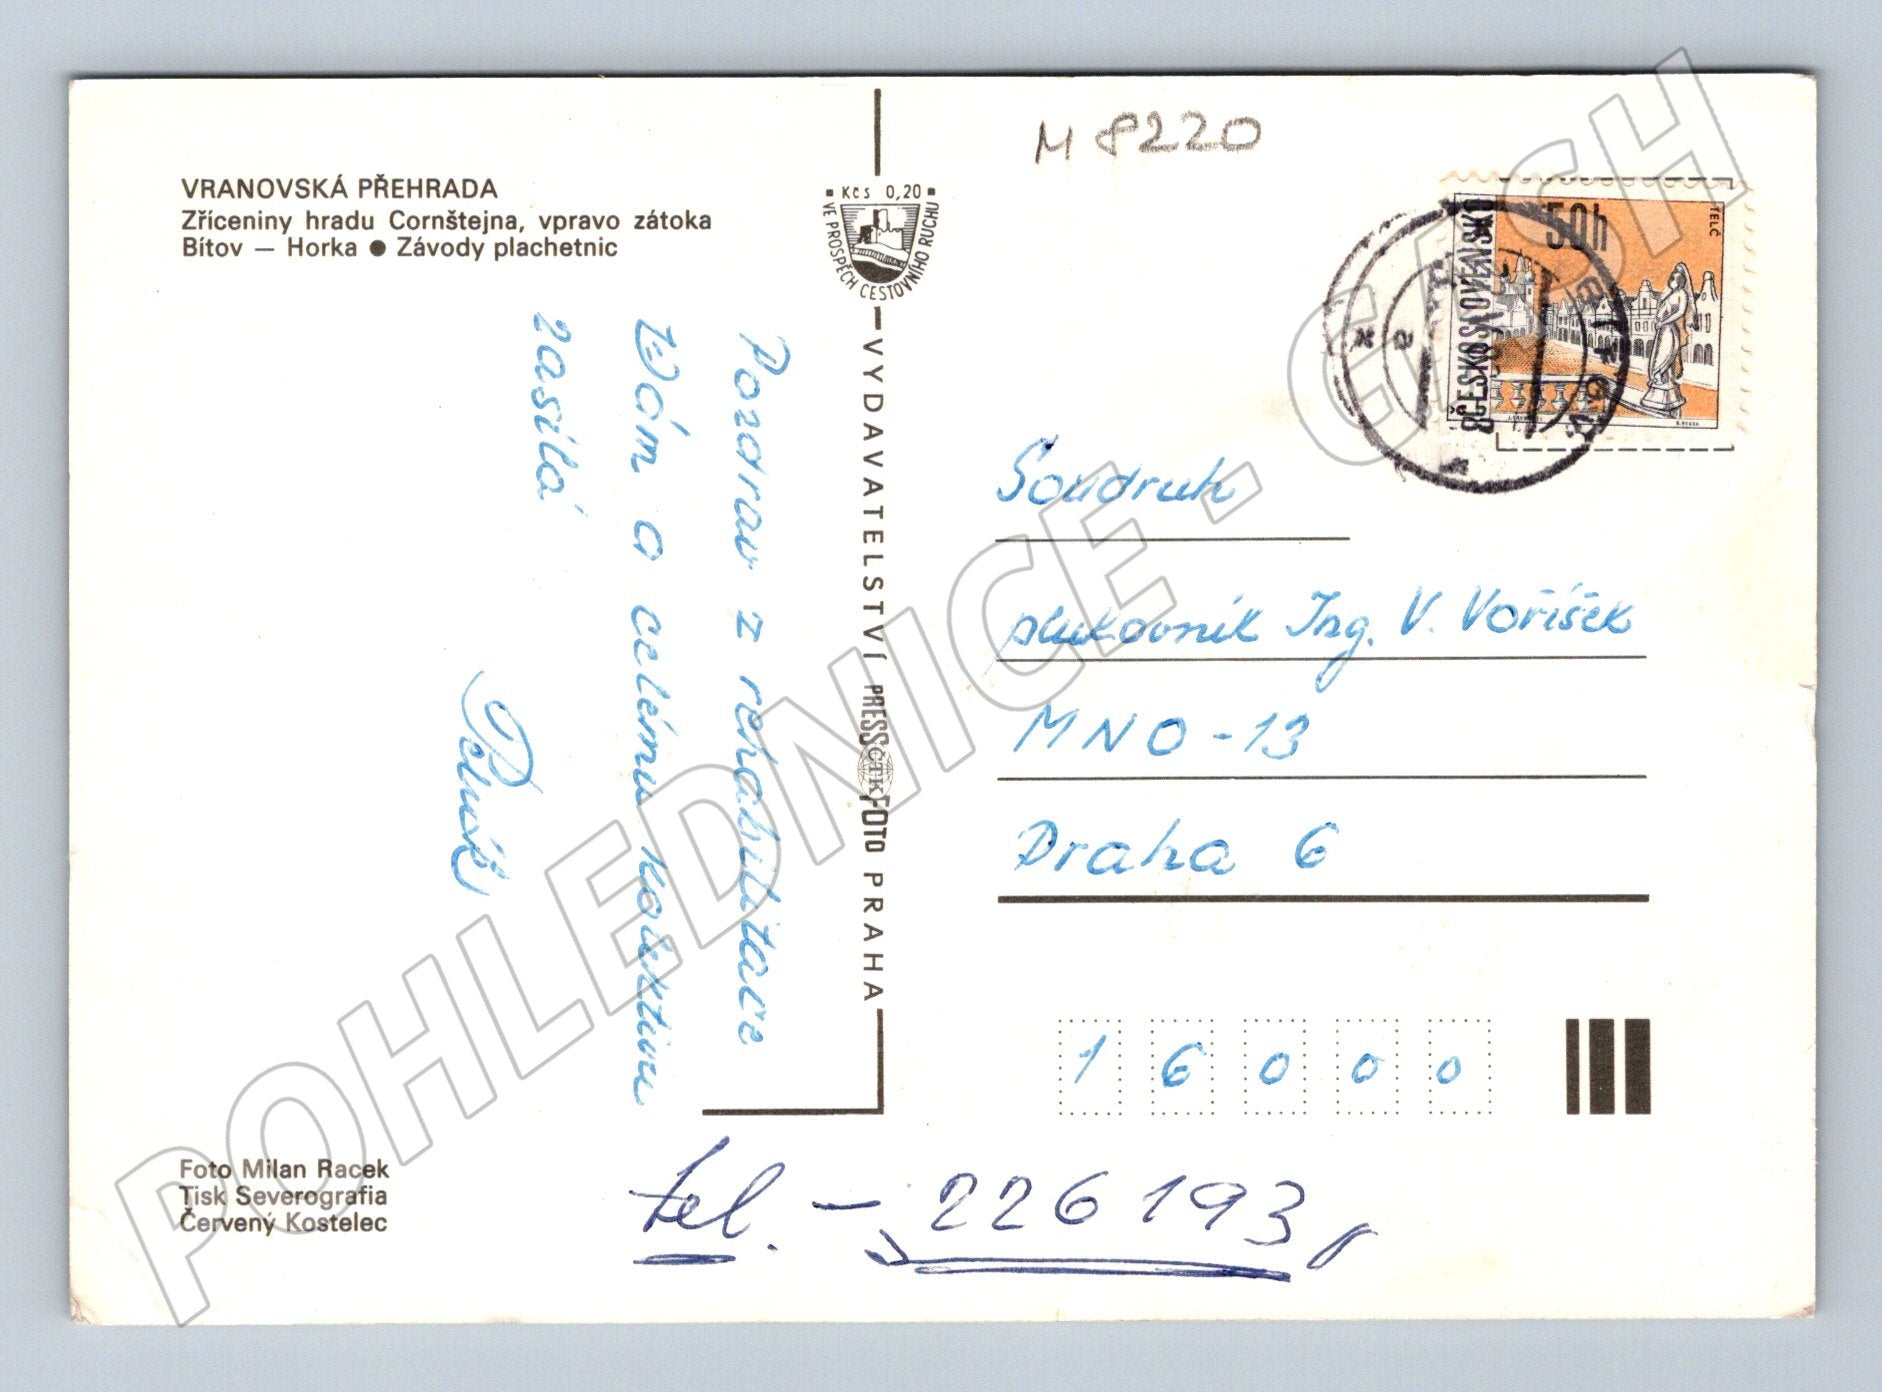 M 8220
VRANOVSKÁ PŘEHRADA
Zříceniny hradu Cornštejna, vpravo zátoka
Bítov — Horka ● Závody plachetnic
Kčs 0,20
VE PROSPĚCH CESTOVNÍHO RUCHU
VYDAVATELSTVÍ PRESSFOTO PRAHA
ČTK
50h
TELČ
ČESKOSLOVENSKO
a
Pozdrav z rehabilitace
Vám a celému kolektivu
zasílá
Soudruh
plukovník Ing. V. Voříšek
MNO - 13
Praha 6
1 6 0 0 0
Foto Milan Racek
Tisk Severografia
Červený Kostelec
tel. - 226193
POHLEDNICE - CASH